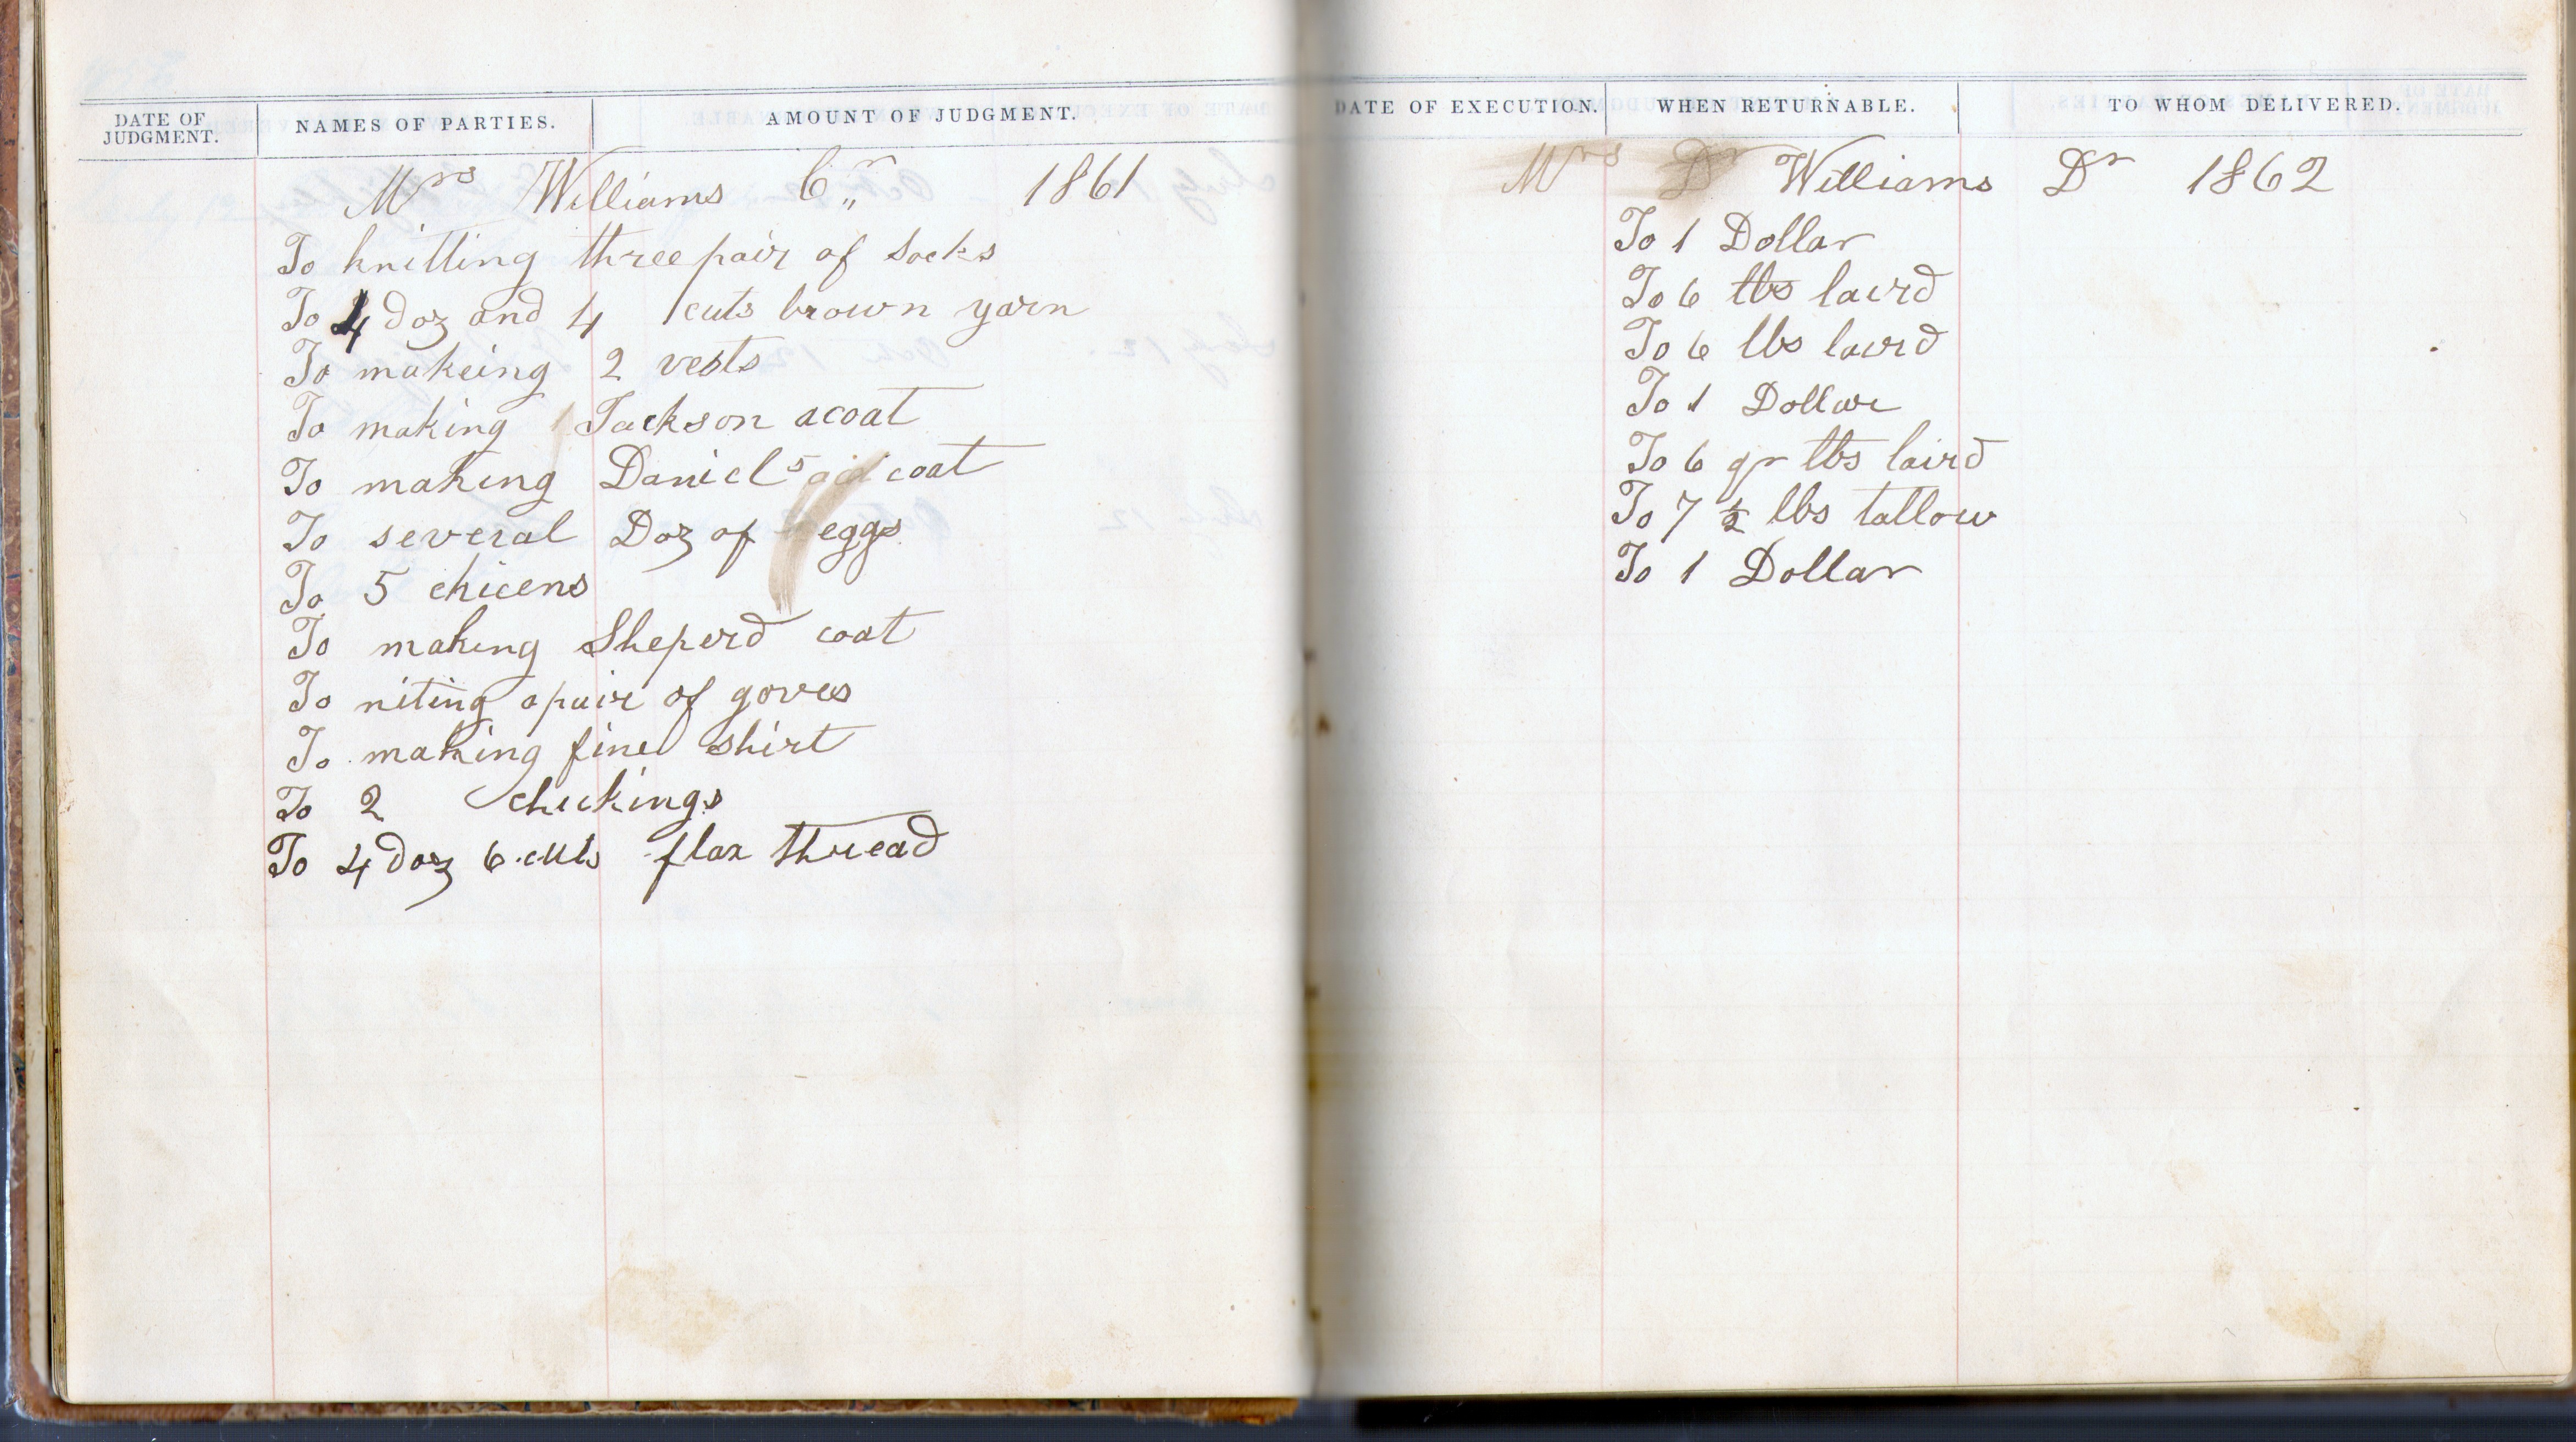 DATE OF JUDGMENT. NAMES OF PARTIES. AMOUNT OF JUDGMENT.
Mrs Williams Cr 1861
To knitting three pair of socks
To 4 doz and 4 cuts brown yarn
To makeing 2 vests
To making Jackson acoat
To making Daniels coat
To several Doz of eggs
To 5 chicens
To making Sheperd coat
To niting apair of goves
To making fine shirt
To 2 chickings
To 4 doz 6 cuts flax thread
DATE OF EXECUTION. WHEN RETURNABLE. TO WHOM DELIVERED.
Mrs Dr Williams Dr 1862
To 1 Dollar
To 6 lbs laird
To 6 lbs laird
To 1 Dollar
To 6 qr lbs laird
To 7 ½ lbs tallow
To 1 Dollar